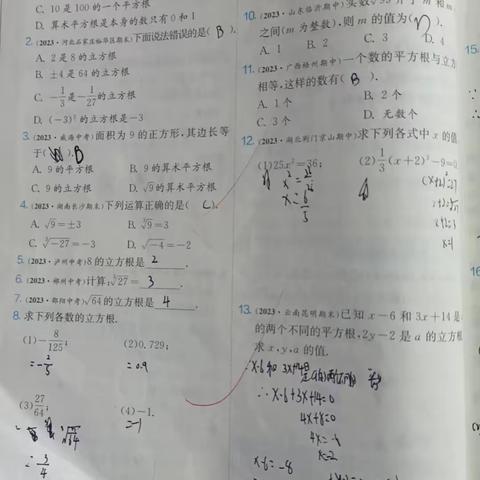 C. 10 是 100 的一个平方根
D. 算术平方根是本身的数只有 0 和 1
2. (2023·河北石家庄裕华区期末)下面说法错误的是( B ).
A. 2 是 8 的立方根
B. ±4 是 64 的立方根
C. -1/3 是 -1/27 的立方根
D. (-3)³ 的立方根是 -3
3. (2023·威海中考)面积为 9 的正方形,其边长等
于( ).B
A. 9 的平方根 B. 9 的算术平方根
C. 9 的立方根 D. √9 的算术平方根
4. (2023·湖南长沙期末)下列运算正确的是( C ).
A. √9=±3 B. ∛9=3
C. ∛-27=-3 D. √-4=-2
5. (2023·泸州中考)8 的立方根是 2 .
6. (2023·郴州中考)计算:∛27= 3 .
7. (2023·邵阳中考)√64 的立方根是 4 .
8. 求下列各数的立方根.
(1)-8/125; (2)0.729;
=-2/5 =0.9
(3)27/64; (4)-1.
=-1
=3/4
10. (2023·山东临沂期中)
之间(m 为整数),则 m 的值为( D ).
A. 1 B. 2 C. 3 D. 4
11. (2023·广西梧州期中)一个数的平方根与立方
相等,这样的数有( B ).
A. 1 个 B. 2 个
C. 3 个 D. 无数个
12. (2023·湖北荆门京山期中)求下列各式中 x 的值
(1)25x²=36; (2)1/3(x+2)³-9=0
x=6/5
x=1
13. (2023·云南昆明期末)已知 x-6 和 3x+14 是
的两个不同的平方根,2y-2 是 a 的立方根
求 x,y,a 的值.
∴x-6+3x+14=0
4x+8=0
4x=-8
x=-2
x-6=-8
15.
16